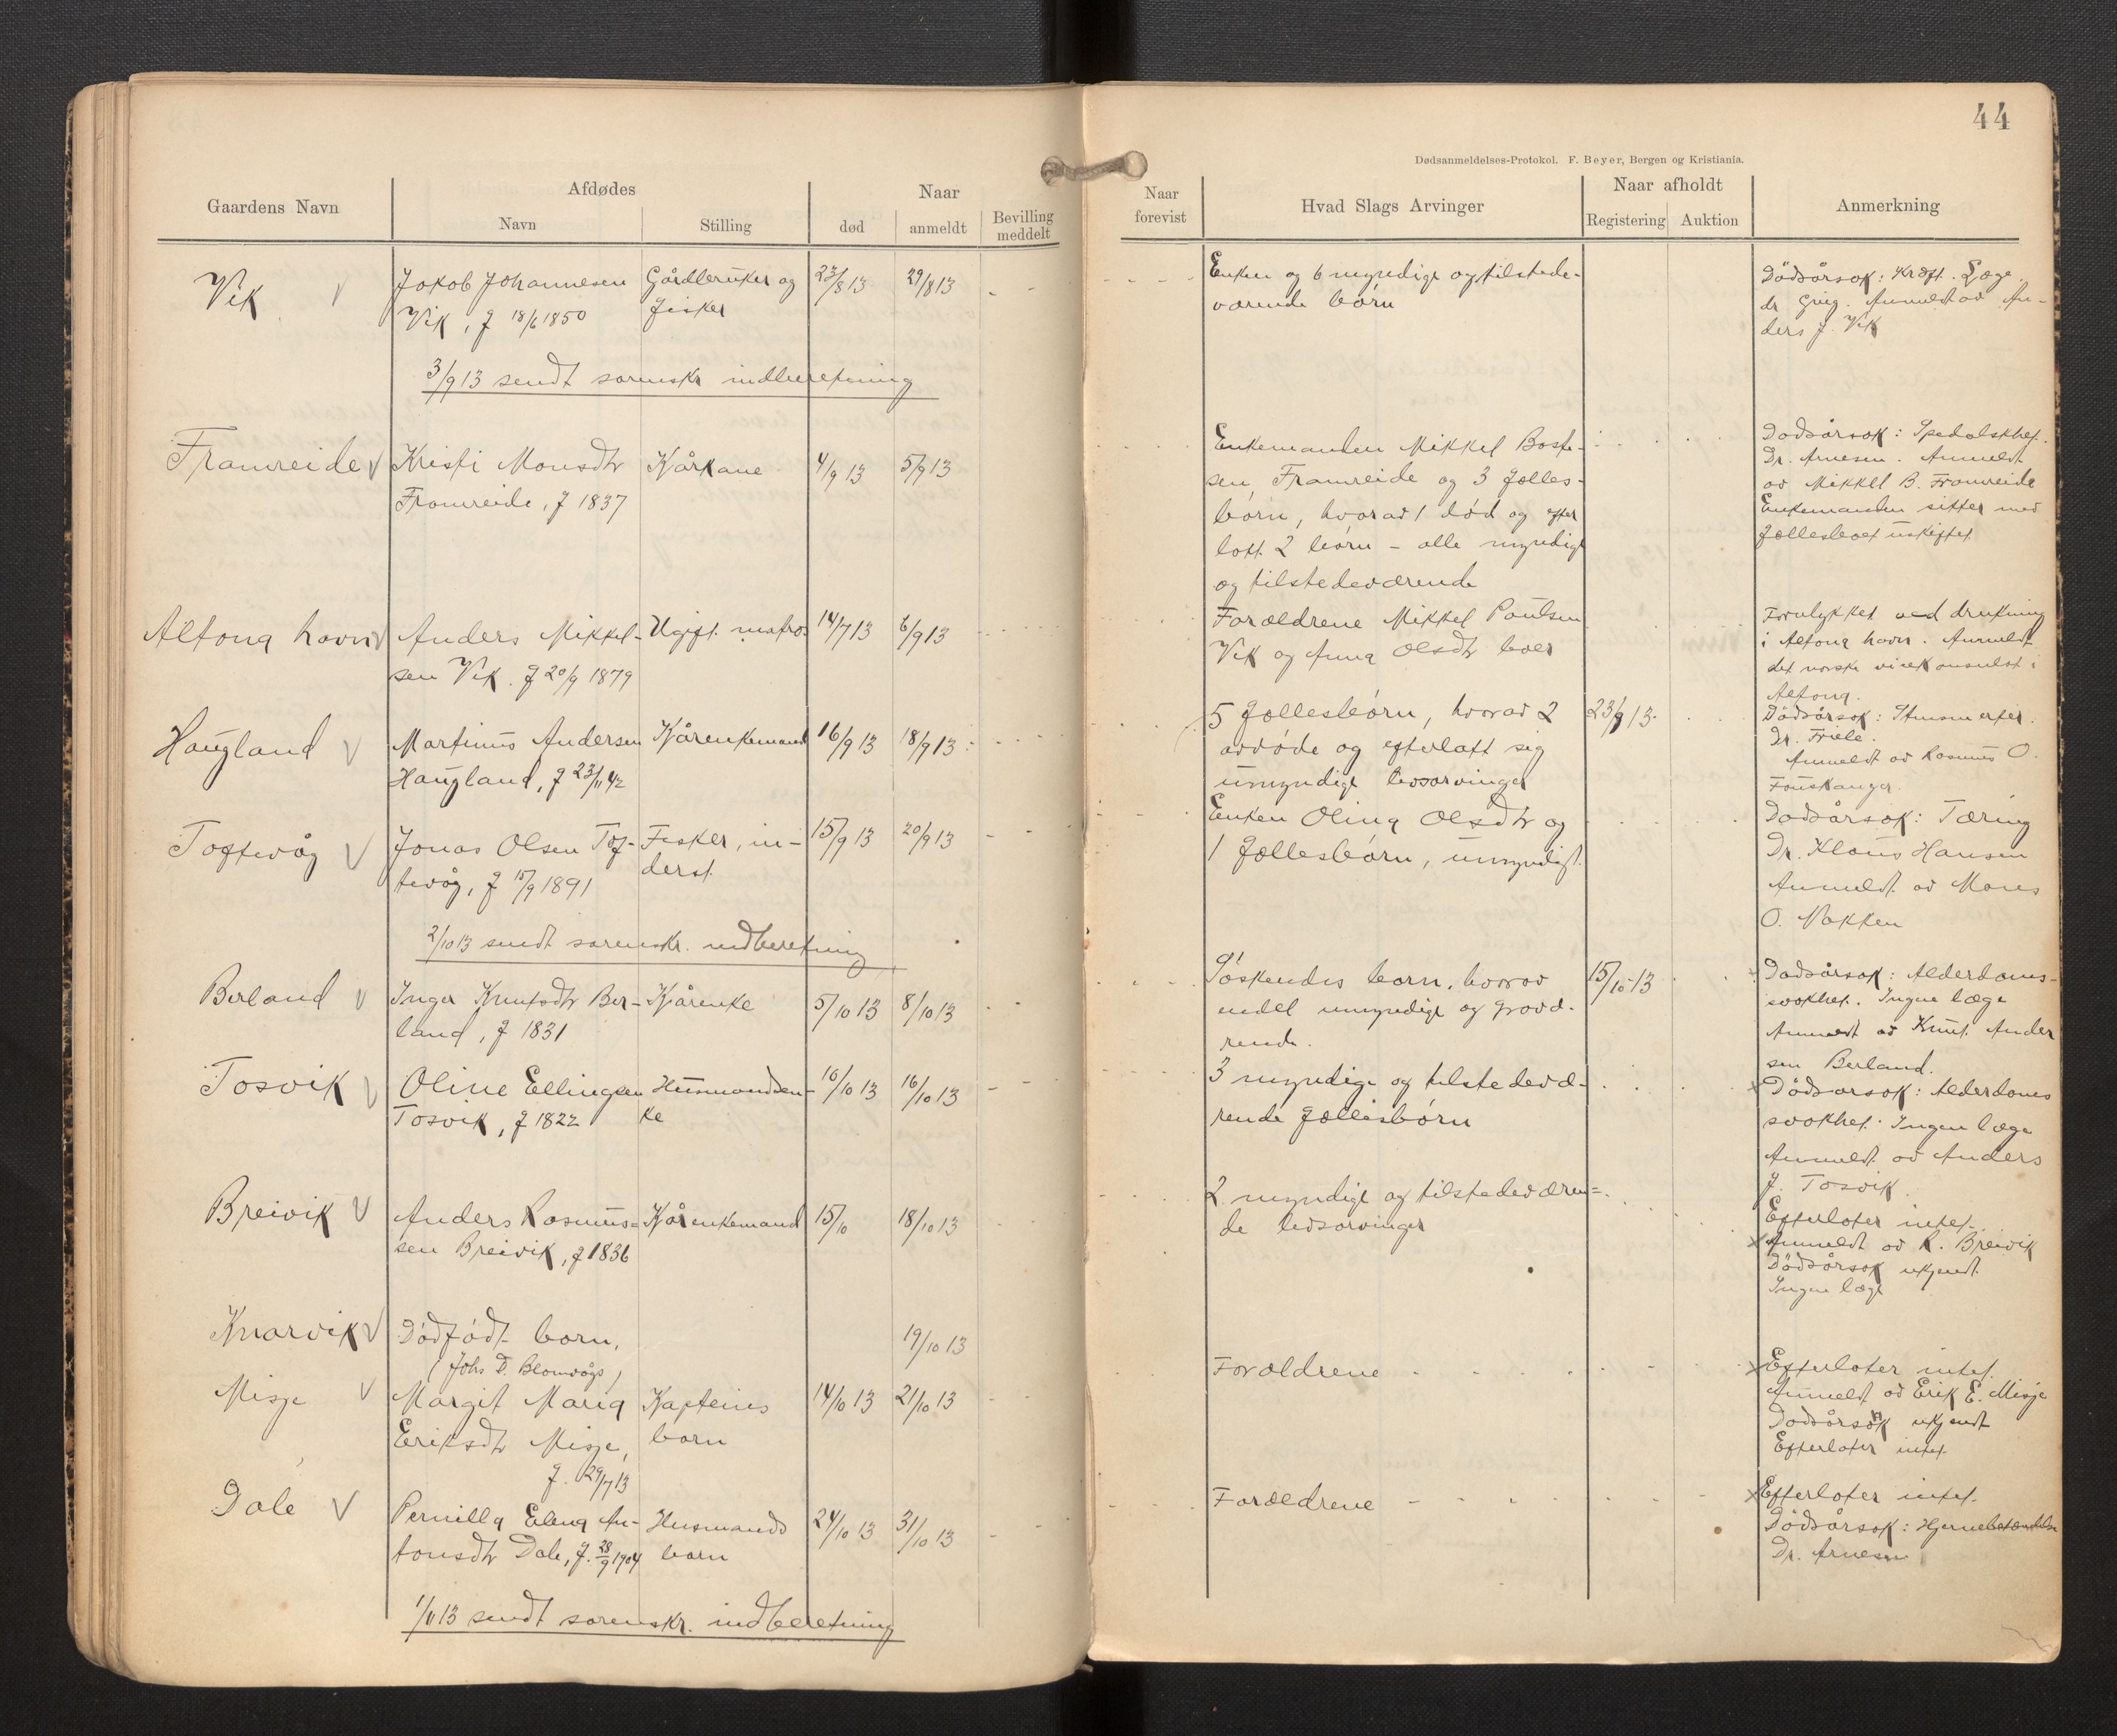 44
Dødsanmeldelses-Protokol. F. Beyer, Bergen og Kristiania.
Gaardens Navn
Afdødes
Navn
Stilling
Naar
død
anmeldt
Bevilling meddelt
Naar forevist
Hvad Slags Arvinger
Naar afholdt
Registering
Auktion
Anmerkning
Vik
Jakob Johannesen
Vik, f 18/6 1850
Gårdbruker og
fisker
23/8 13
29/8 13
Enken og 6 myndige og tilstede-
værende børn
Dödsårsok: Kræft. Læge
dr Grieg. Anmeldt av An-
ders J. Vik
3/9 13 sendt sorenskr indberetning
Framreide
Kristi Monsdtr
Framreide, f 1837
Kårkone
4/9 13
5/9 13
Enkemanden Mikkel Boste-
sen Framreide og 3 fælles-
børn, hvorav 1 død og efter
latt 2 børn - alle myndige
og tilstedeværende
Dødsårsok: Spedalskhet.
Dr. Arnesen. Anmeldt
av Mikkel B. Framreide
Enkemanden sitter med
fællesboet uskiftet
Altona havn
Anders Mikkel-
sen Vik. f 20/9 1879
Ugift. matros
14/7 13
6/9 13
Forældrene Mikkel Paulsen
Vik og Anna Olsdtr lever
Forulykket ved drukning
i Altona havn. Anmeldt
det norske vicekonsulat i
Altona.
Haugland
Martinus Andersen
Haugland, f 23/11 42
Kårenkemand
16/9 13
18/9 13
5 fællesbørn, hvorav 2
avdøde og efterlatt sig
umyndige livsarvinger
23/9 13
Dødsårsok:
Dr. Friele.
Anmeldt av Rasmus O.
Fonskanger.
Toftevåg
Jonas Olsen Tof-
tevåg, f 15/9 1891
Fisker, in-
derst
15/9 13
20/9 13
Enken Olina Olsdtr og
1 fællesbørn, umyndigt.
Dødsårsok: Tæring
Dr. Klaus Hansen
Anmeldt av Mons
O. Nakken
2/10 13 sendt sorenskr. indberetning
Berland
Inger Knutsdtr Ber-
land, f 1831
Kårenke
5/10 13
8/10 13
Søskendes børn, hvorav
endel umyndige og fravæ-
rende.
15/10 13
Dødsårsok: Alderdoms-
svakhet. Ingen læge
Anmeldt av Knut Ander
sen Berland.
Tosvik
Oline Ellingsen
Tosvik, f 1822
Husmandsen-
ke
10/10 13
16/10 13
3 myndige og tilstedevæ-
rende fællesbørn
Dødsårsok: Alderdoms
svakhet. Ingen læge
Anmeldt av Anders
J. Tosvik
Breivik
Anders Rasmus-
sen Breivik, f 1836
Kårenkemand
15/10
18/10 13
2 myndige og tilstedeværen-
de livsarvinger
Efterlater intet.
Anmeldt av R. Breivik
Dødsårsok ukjendt.
Ingen læge
Knarvik
Dødfødt barn,
(Johs D. Blomvågs)
19/10 13
Misje
Margit Maria
Eriksdtr Misje,
f. 29/7 13
Kapteins
barn
14/10 13
21/10 13
Forældrene
Efterlater intet.
Anmeldt av Erik E. Misje
Dødsårsok ukjendt
Efterlater intet.
Dale
Pernilla Elena An-
tonsdtr Dale, f. 28/9 1904
Husmands
barn
24/10 13
31/10 13
Forældrene
Efterlater intet.
Dødsårsok: Hjernebetændelse
Dr. Arnesen
1/11 13 sendt sorenskr. indberetning